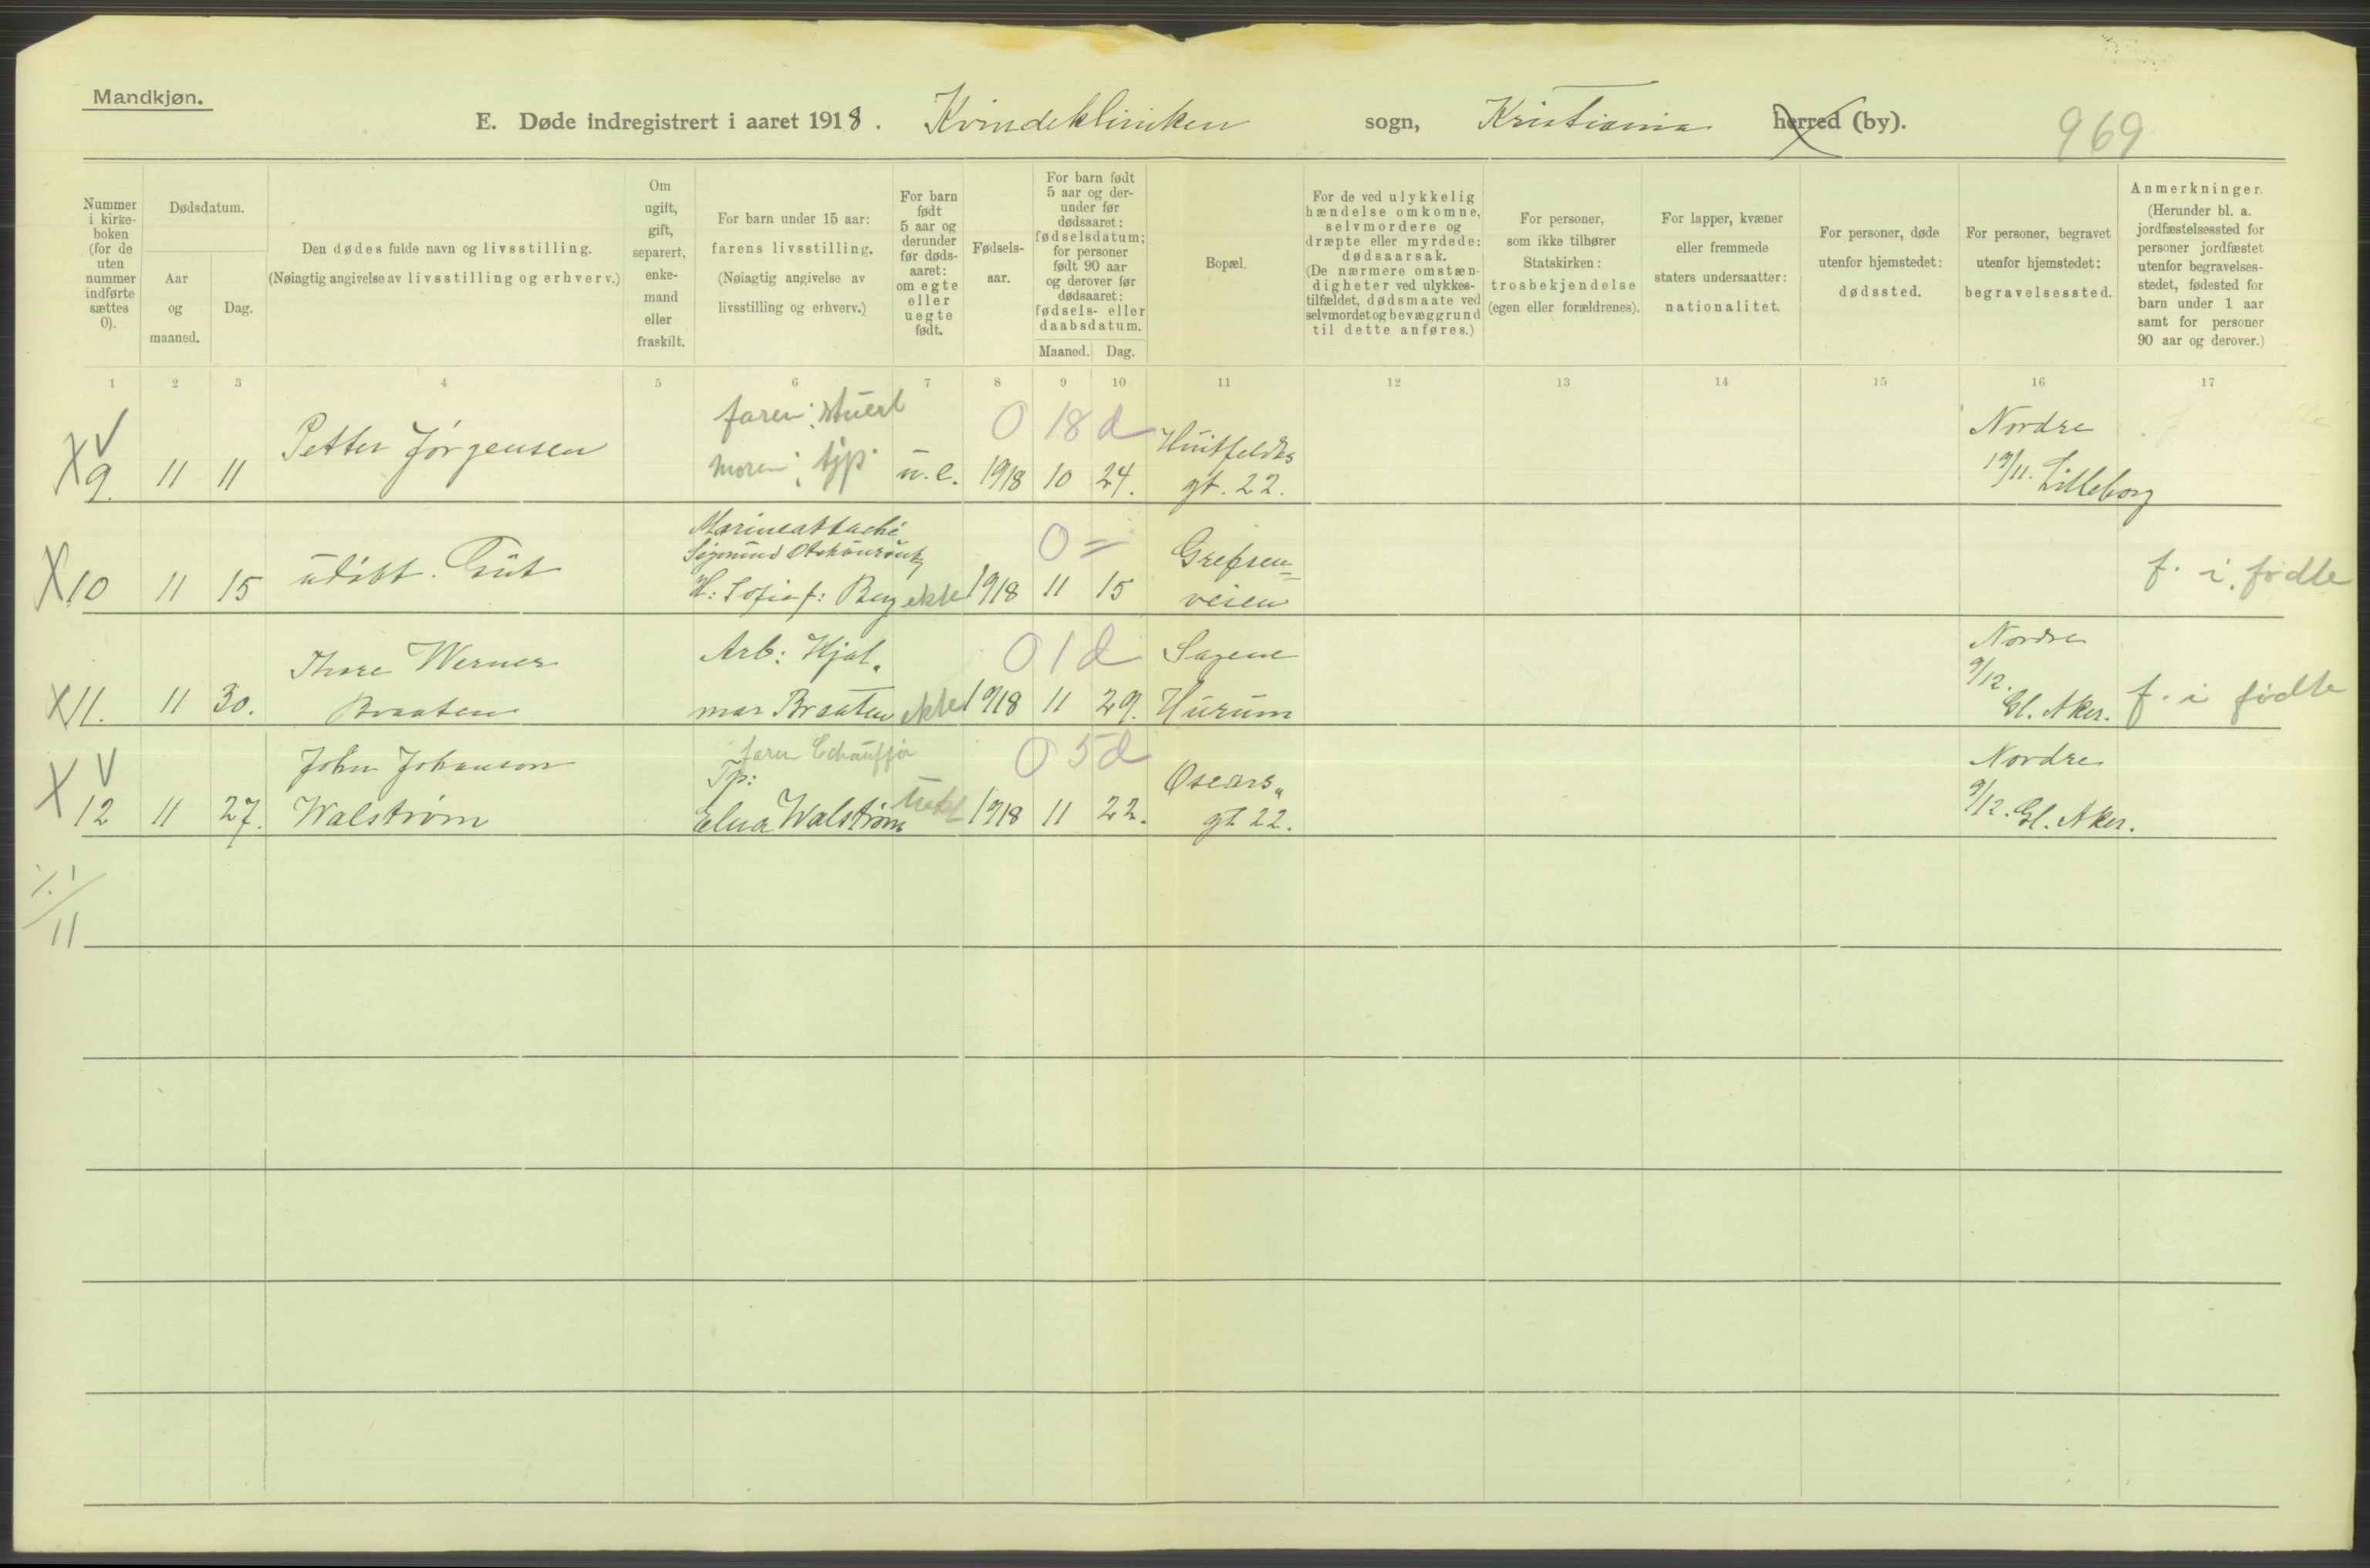 Mandkjøn.
E. Døde indregistrert i aaret 1918. Kvindekliniken sogn, Kristiania herred (by).
969
Nummer i kirke-boken (for de uten nummer indførte sættes 0).
Dødsdatum.
Aar og maaned.
Dag.
Den dødes fulde navn og livsstilling.
(Nøiagtig angivelse av livsstilling og erhverv.)
Om ugift, gift, separert, enke-mand eller fraskilt.
For barn under 15 aar:
farens livsstilling.
(Nøiagtig angivelse av
livsstilling og erhverv.)
For barn født 5 aar og derunder før døds-aaret: om egte eller uegte født.
Fødsels-aar.
For barn født 5 aar og der-under før dødsaaret: fødselsdatum; for personer født 90 aar og derover før dødsaaret: fødsels- eller daabsdatum.
Maaned.
Dag.
Bopæl.
For de ved ulykkelig hændelse omkomne, selvmordere og dræpte eller myrdede: dødsaarsak. (De nærmere omstæn-digheter ved ulykkes-tilfældet, dødsmaate ved selvmordet og bevæggrund til dette anføres.)
For personer, som ikke tilhører Statskirken: trosbekjendelse (egen eller forældrenes).
For lapper, kvæner eller fremmede staters undersaatter: nationalitet.
For personer, døde utenfor hjemstedet: dødssted.
For personer, begravet utenfor hjemstedet: begravelsessted.
Anmerkninger.
(Herunder bl. a. jordfæstelsessted for personer jordfæstet utenfor begravelses-stedet, fødested for barn under 1 aar samt for personer 90 aar og derover.)
1 2 3 4 5 6 7 8 9 10 11 12 13 14 15 16 17
X V
faren: stuert 0 18 d Nordre
Petter Jørgensen Huitfeldts
9. 11 11 moren: tjp. u.e. 1918 10 24. gt. 22. 19/11. Lilleborg
Marineattaché 0 =
Sigmund
X 10 11 15 udøbt. Gut H: Sofie f: Berg ekte 1918 11 15 Grefsen-
veien f. i. fødte
Thore Werner Arb: Hjal- 0 1 d Sagene Nordre
9/12.
X 11. 11 30. Braaten mar Braaten ekte 1918 11 29. Hurum Gl. Aker. f. i fødte
X V
John Johanson faren Chauffør 0 5 d Oscars- Nordre
Tp:
12 11 27. Walstrøm Elna Walstrøm uekt 1918 11 22. gt 22. 9/12. Gl. Aker.
11